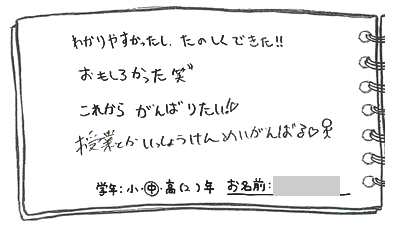 わかりやすかったし、たのしくできた!!
おもしろかった笑
これから がんばりたい!♡
授業とかいっしょうけんめいがんばる♡
学年:小・㊥・高(2)年 お名前: